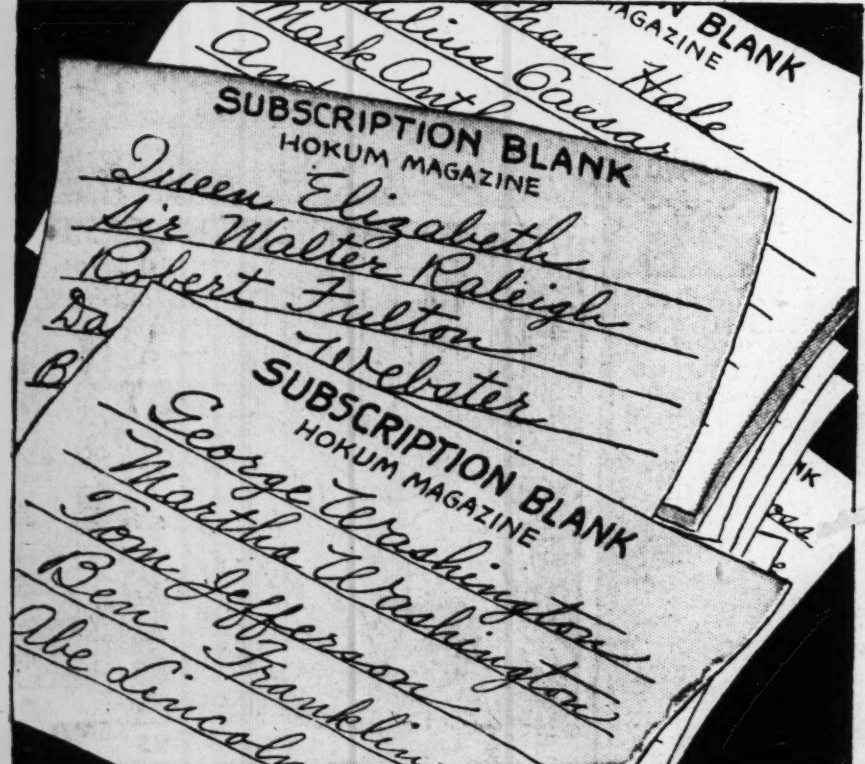 BLANK
MAGAZINE
Hale
Julius Caesar
Mark Anth
SUBSCRIPTION BLANK
HOKUM MAGAZINE
Queen Elizabeth
Sir Walter Raleigh
Robert Fulton
Da Webster
B
SUBSCRIPTION BLANK
HOKUM MAGAZINE
George Washington
Martha Washington
Tom Jefferson
Ben Franklin
Abe Lincoln